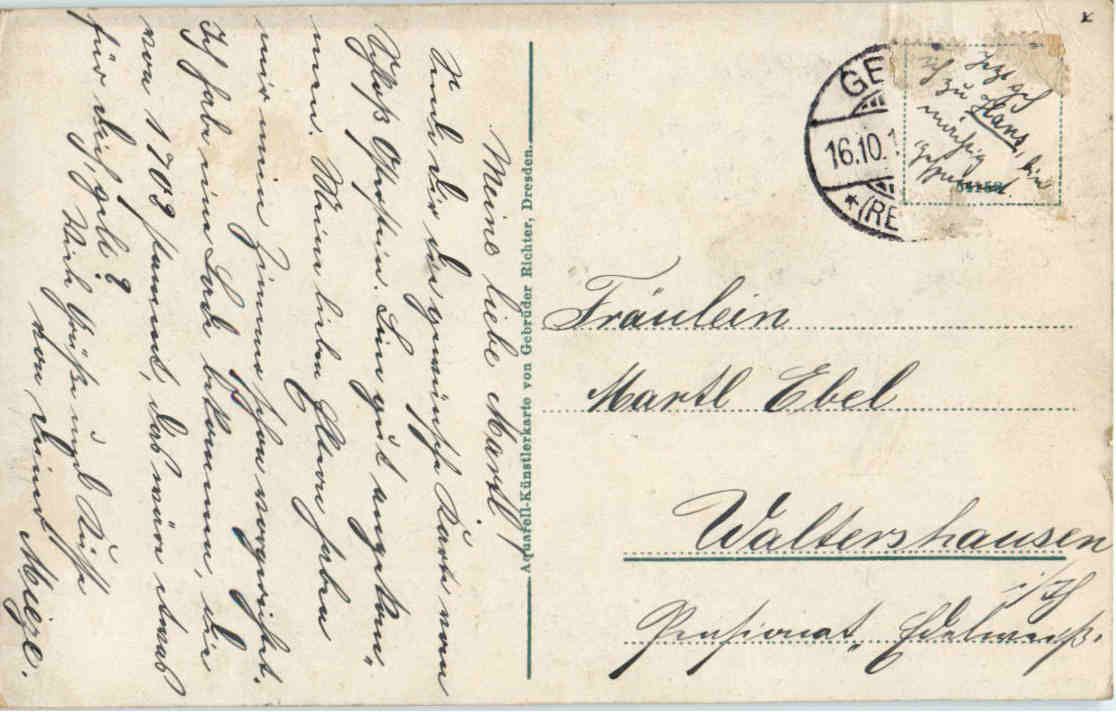 Meine liebe Martl!
Anbei Dir die gewünschte Karte vom
Schloß Osterstein. Bin gut angekom-
men. Meine lieben Eltern haben
mir mein Zimmer schön vorgerichtet.
Ich habe eine Lade bekommen, die
von 1708 stammt, das wäre etwas
für Dich, gell?
Viele Grüße und Küsse
von Deiner Mieze.
Aquarell-Künstlerkarte von Gebrüder Richter, Dresden.
GE
16.10.1
*(RE
Jetzt geh
ich zu Hans, bin
Fräulein
Martl Ebel
Waltershausen
i/Th
Pensionat „Edelweiß.